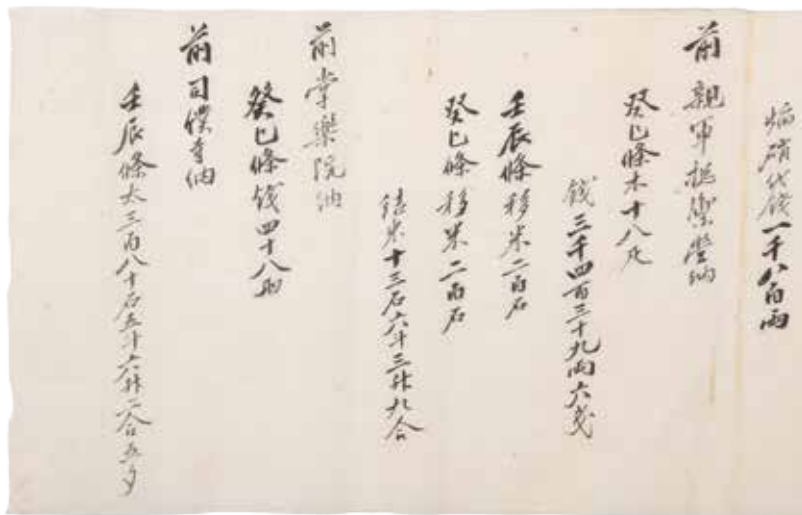 焰硝代錢一千八百両
前親軍摠禦營納
癸巳條木十八疋
錢三千四百三十九両六戔
壬辰條移米二百石
癸巳條移米二百石
結米十三石六斗三升九合
前掌樂院納
癸巳條錢四十八両
前司僕寺納
壬辰條太三百八十石五斗六升二合五夕